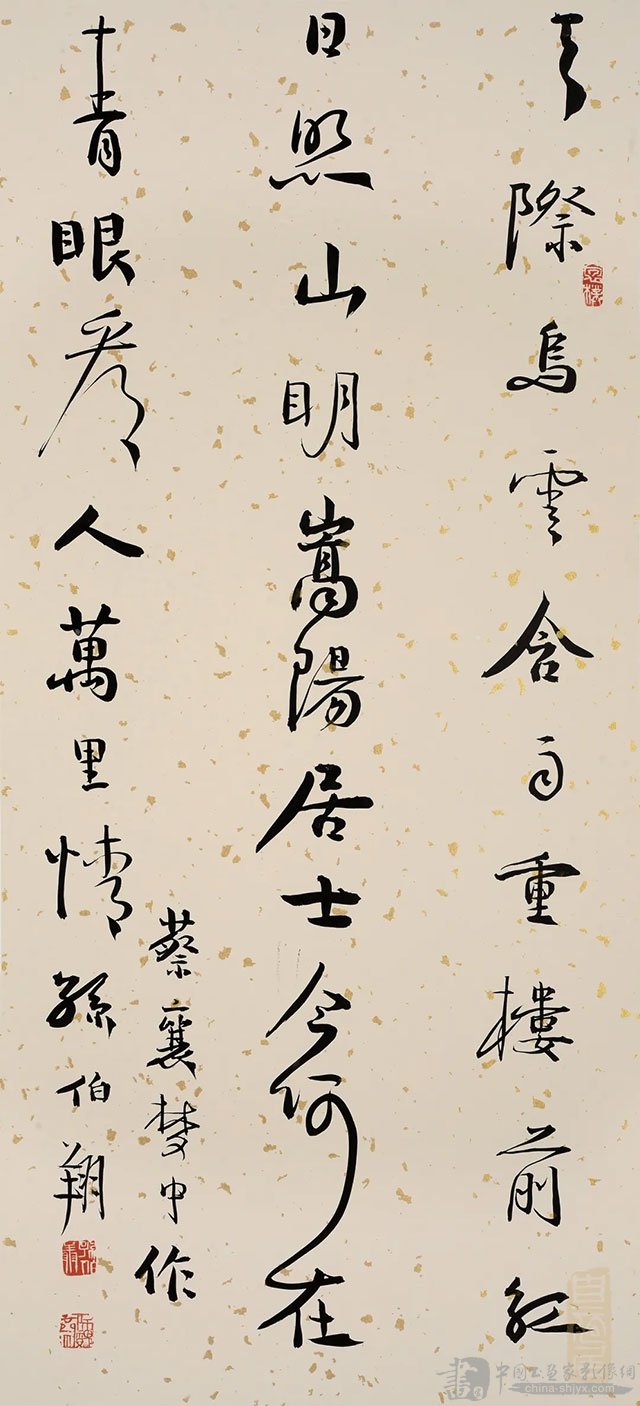 天際烏雲含雨重樓前紅
日照山明嵩陽居士今何在
青眼看人萬里情孫伯翔
蔡襄夢中作
中國书画家影像網
china-shjyx.com